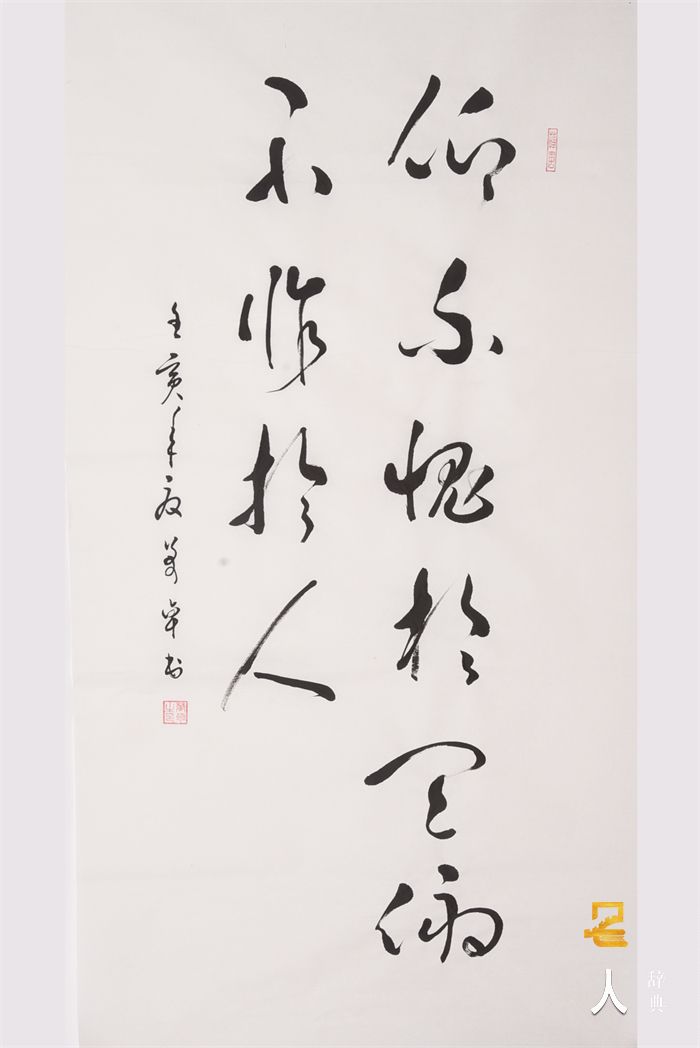 仰不愧於天俯
不怍於人
壬寅年夏
书
名人辞典